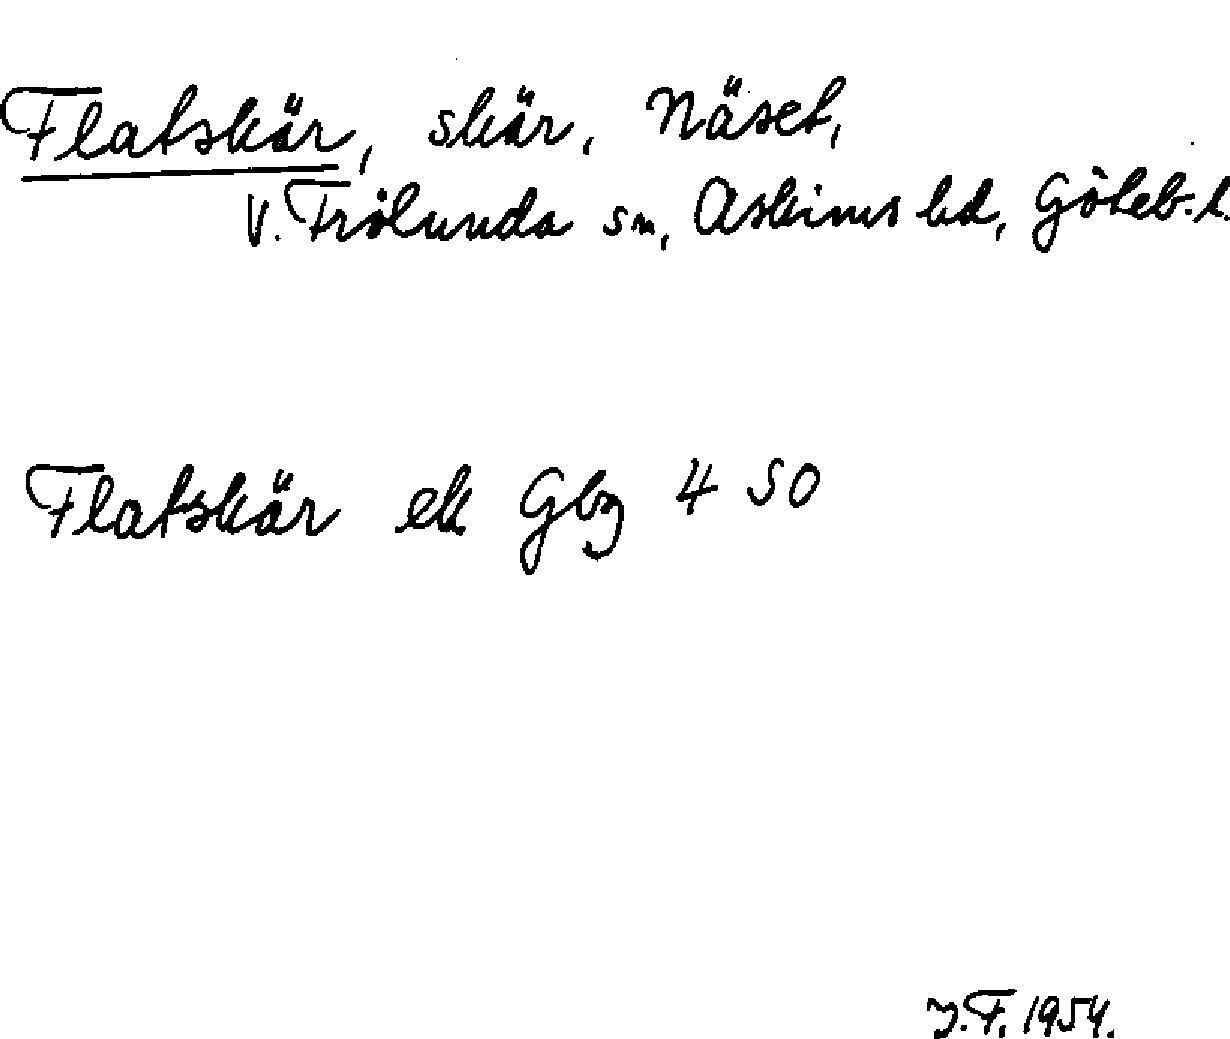 Flatskär, skär, Näset,
V. Frölunda sn, Askims hd, Göteb. l.
Flatskär ek Gbg 4 SO
J.F. 1954.